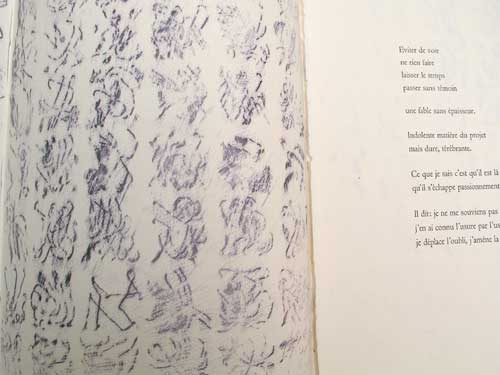 Eviter de voir
ne rien faire
laisser le temps
passer sans témoin
une fable sans épaisseur.
Indolente matière du projet
mais dure, térébrante.
Ce que je sais c'est qu'il est là
qu'il s'échappe passionnément
Il dit: je ne me souviens pas
j'en ai connu l'usure par l'us
je déplace l'oubli, j'amène la